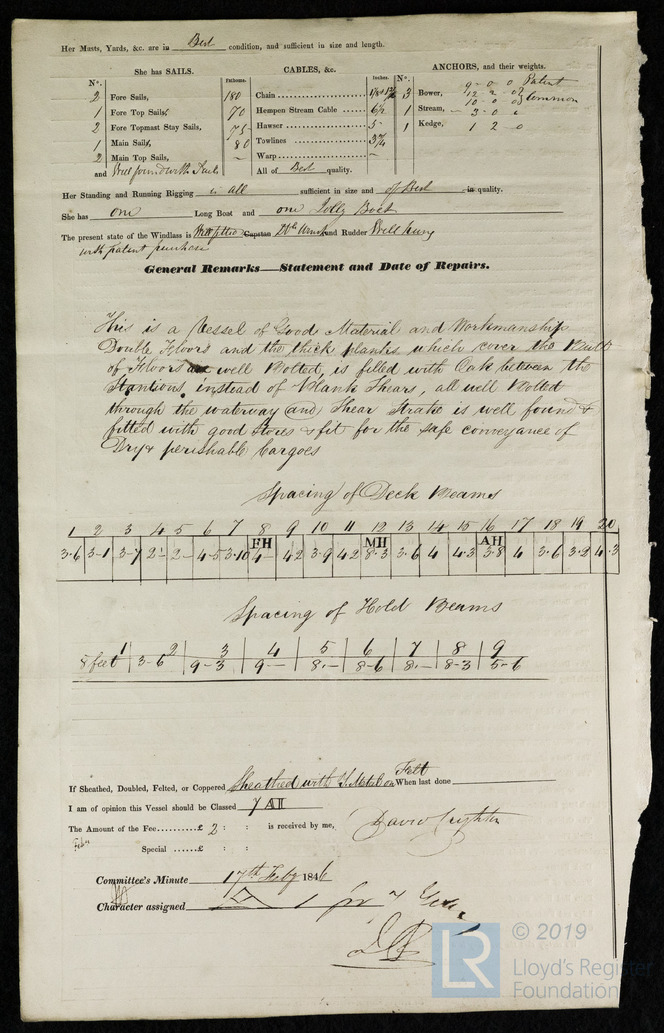 Her Masts, Yards, &c. are in Best condition, and sufficient in size and length.
She has SAILS.
N°.
2 Fore Sails,
1 Fore Top Sails,
2 Fore Topmast Stay Sails,
1 Main Sails,
2 Main Top Sails,
and Well found with Sails
CABLES, &c.
Fathoms. Inches.
180 Chain
70 Hempen Stream Cable 6½
75 Hawser 5 -
80 Towlines 3¾
- Warp -
All of Best quality.
ANCHORS, and their weights.
N°.
3 Bower, 9 - 0 - 0 Patent
12 - 2 - 0
10 - 0 - 0 Common
1 Stream, - 3 - 0
1 Kedge, 1 2 0
Her Standing and Running Rigging is all sufficient in size and of Best in quality.
She has one Long Boat and one Jolly Boat
The present state of the Windlass is Capstan and Rudder Well hung
with patent purchase
General Remarks—Statement and Date of Repairs.
This is a Vessel of Good Material and Workmanship
Double Floors and the thick planks which cover the Butts
of Floors are well Bolted, is filled with Oak between the
Stantions, instead of Plank Shears, all well Bolted
through the waterway and Shear Strake is well found &
fitted with good Stores & fit for the safe conveyance of
Dry & perishable Cargoes
Spacing of Deck Beams
1 2 3 4 5 6 7 8 9 10 11 12 13 14 15 16 17 18 19 20
FH MH AH
3-6 3-1 3-7 2- 2- 4-5 3-10 4- 42 3-9 42 8-3 3-6 4 4-3 3-8 4 3-6 3-2 4-3
Spacing of Hold Beams
1 2 3 4 5 6 7 8 9
8 feet 3-6 9-3 9- 8.- 8-6 8.- 8-3 5-6
If Sheathed, Doubled, Felted, or Coppered Sheathed with Y. Metal on Felt When last done
I am of opinion this Vessel should be Classed 7 A1
The Amount of the Fee.........£ 2 : : is received by me,
Special .......£ : :
Committee's Minute 17th Feby 1846
Character assigned A 1 for 7 Years
© 2019
LR
Lloyd's Register
Foundation